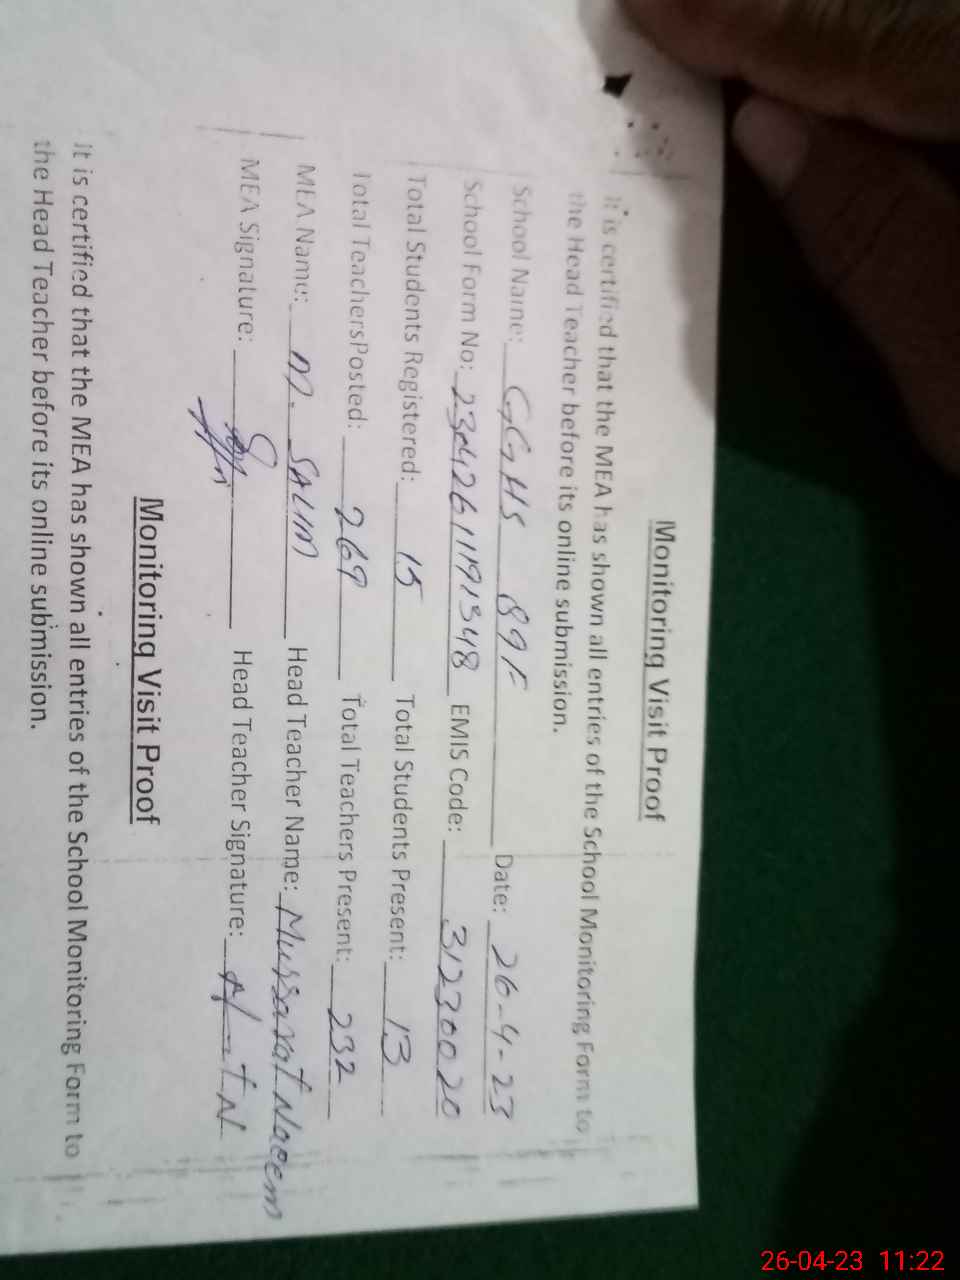 Monitoring Visit Proof
It is certified that the MEA has shown all entries of the School Monitoring Form to
the Head Teacher before its online submission.
School Name: GGHS 89F Date: 26-4-23
School Form No: 23042611191348 EMIS Code: 31230020
Total Students Registered: 15 Total Students Present: 13
Total TeachersPosted: 269 Total Teachers Present: 232
MEA Name: M. SALIM Head Teacher Name: Mussarat Naeem
MEA Signature: Head Teacher Signature:
Monitoring Visit Proof
It is certified that the MEA has shown all entries of the School Monitoring Form to
the Head Teacher before its online submission.
26-04-23 11:22